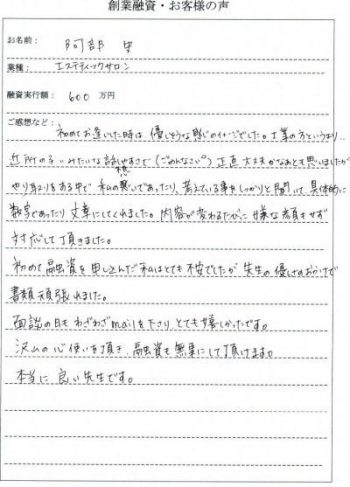 創業融資・お客様の声
お名前： 阿部 
業種： エステティックサロン
融資実行額： 600 万円
ご感想など： 初めてお逢いした時は、優しそうな感じのイメージでした。士業の方というより、
近所の みたいな話しやすさで（ごめんなさい）正直大丈夫かなあとも思いましたが
やり取りをする中で 私の想いであったり、考えている事をしっかりと聞いて、具体的に
数字であったり文章にしてくれました。内容が変わるたびに嫌な顔もせず
対応して頂きました。
初めて融資を申し込んだ私はとても不安でしたが先生の優しさのおかげで
書類頑張れました。
面談の日もわざわざmailを下さり、とても嬉しかったです。
沢山の心使いを頂き、融資も無事にして頂けます。
本当に良い先生です。